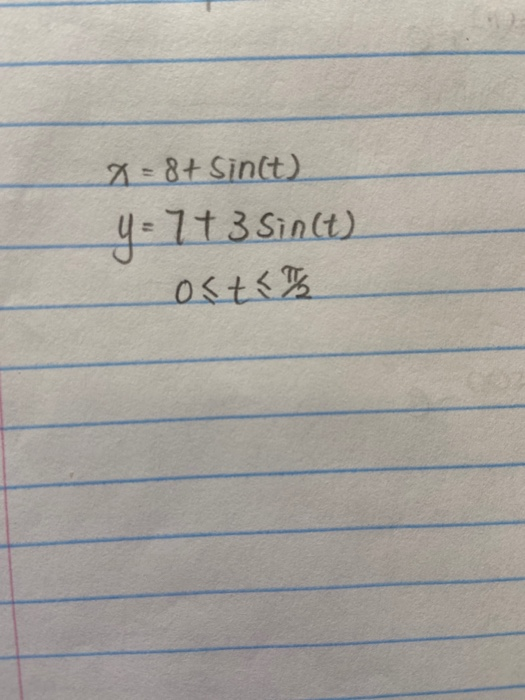 x = 8 + Sin(t)
y = 7 + 3 Sin(t)
0 ≤ t ≤ π/2